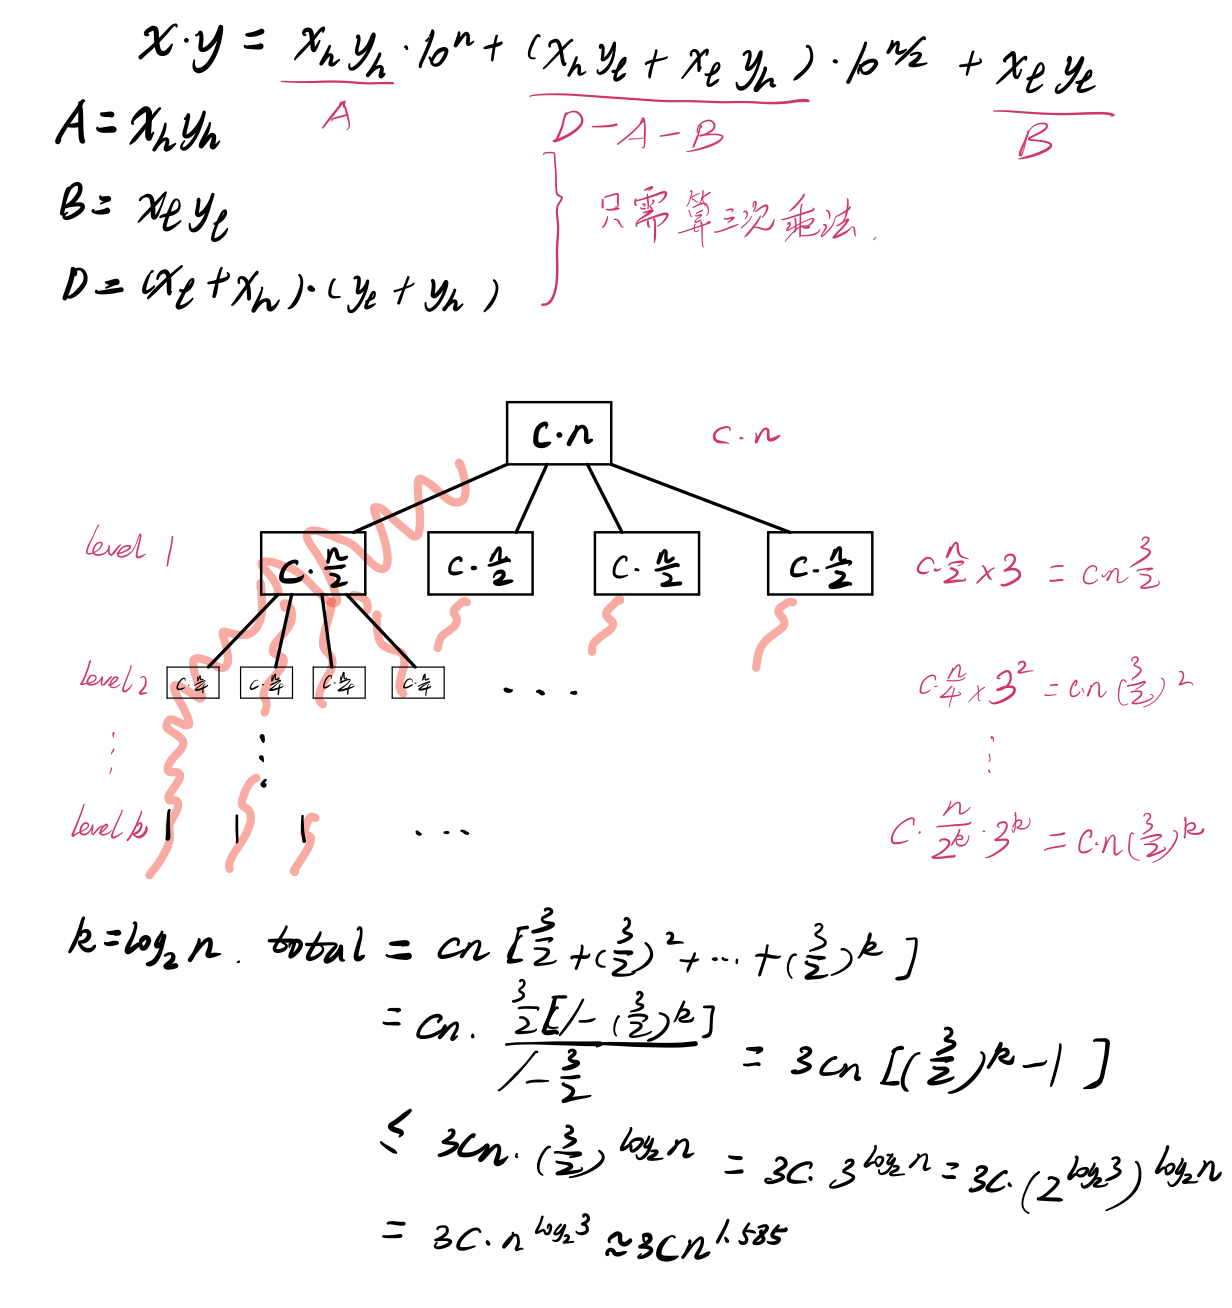 x·y = x_h y_h · 10^n + (x_h y_ℓ + x_ℓ y_h) · 10^{n/2} + x_ℓ y_ℓ
A D-A-B B
A = x_h y_h
B = x_ℓ y_ℓ
D = (x_ℓ + x_h)·(y_ℓ + y_h)
只需算三次乘法.
c·n c·n
level 1 c·n/2 c·n/2 c·n/2 c·n/2 c·n/2 × 3 = cn 3/2
level 2 c·n/4 c·n/4 c·n/4 c·n/4 ... c·n/4 × 3^2 = c·n(3/2)^2
⋮ ⋮ ⋮
level k 1 1 1 ... C·n/2^k · 3^k = c·n(3/2)^k
k = log_2 n. total = cn [3/2 + (3/2)^2 + ... + (3/2)^k]
= cn · 3/2[1-(3/2)^k] / 1-3/2 = 3cn [(3/2)^k - 1]
≤ 3cn · (3/2)^{log_2 n} = 3c · 3^{log_2 n} = 3c · (2^{log_2 3})^{log_2 n}
= 3c · n^{log_2 3} ≈ 3cn^{1.585}